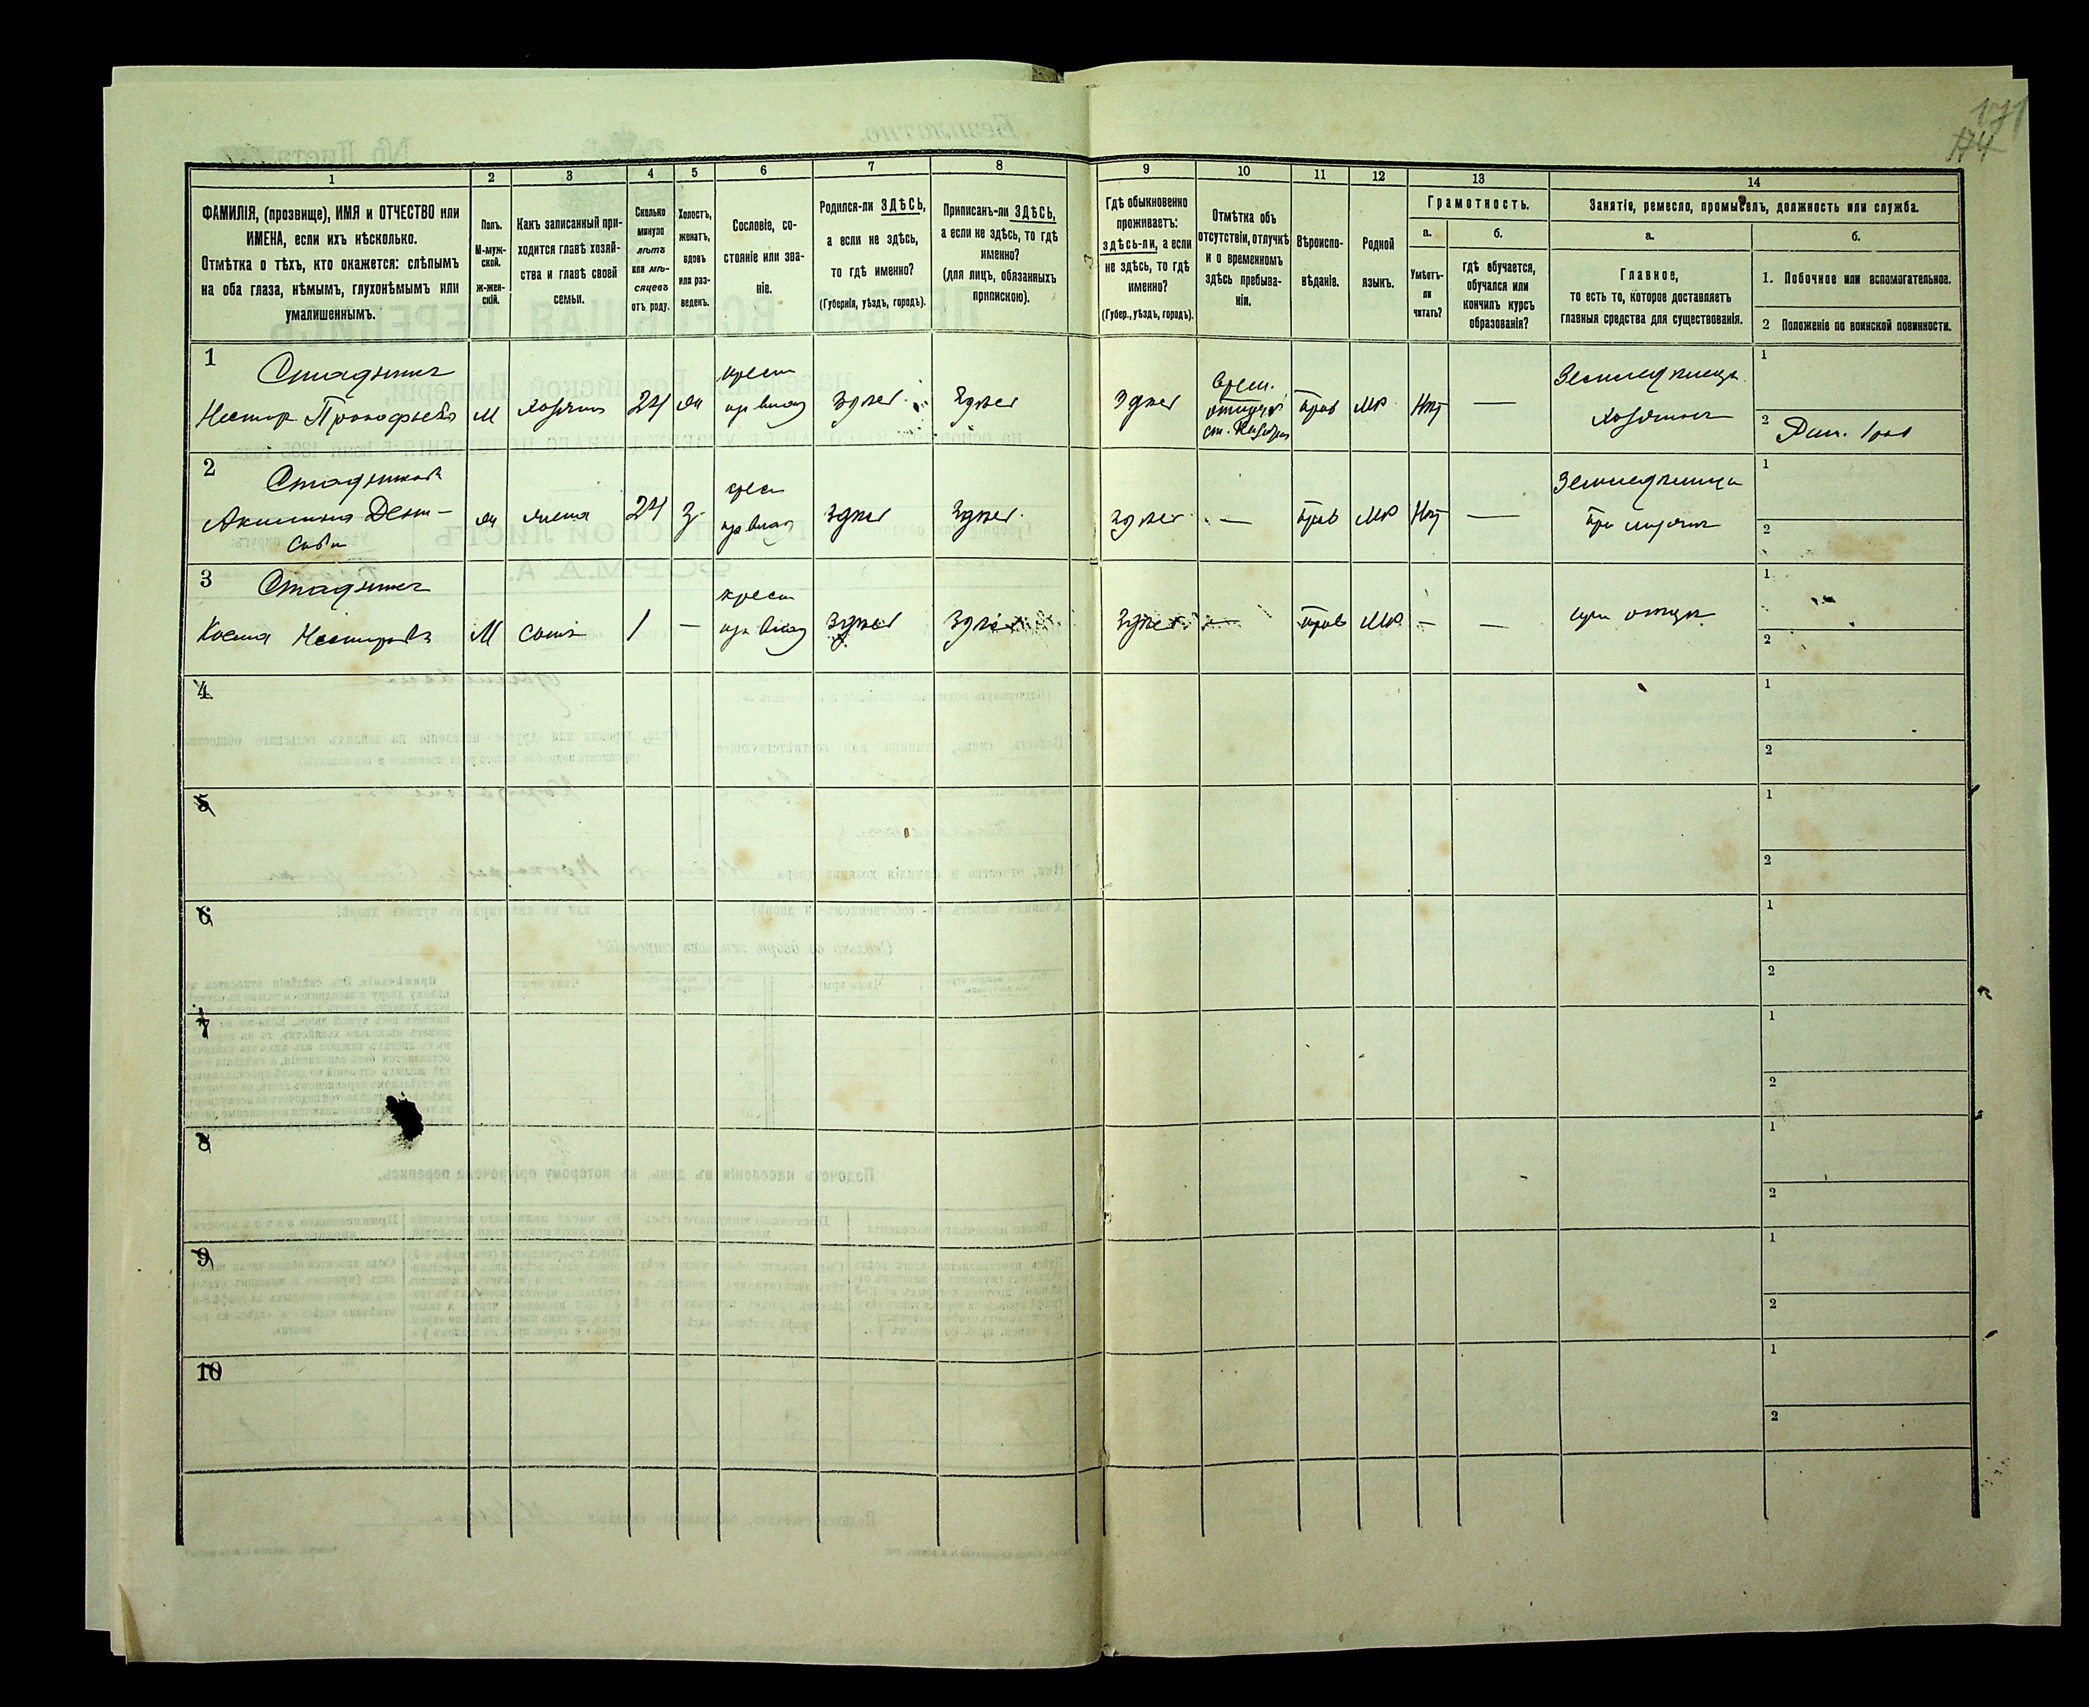 171
174
1
2
3
4
5
6
7
8
ФАМИЛІЯ, (прозвище), ИМЯ и ОТЧЕСТВО или
ИМЕНА, если ихъ нѣсколько.
Отмѣтка о тѣхъ, кто окажется: слѣпымъ
на оба глаза, нѣмымъ, глухонѣмымъ или
умалишеннымъ.
Полъ.
М-муж-
ской.
ж-жен-
скій.
Какъ записанный при-
ходится главѣ хозяй-
ства и главѣ своей
семьи.
Сколько
минуло
лѣтъ
или мѣ-
сяцевъ
отъ роду.
Холостъ,
женатъ,
вдовъ
или раз-
веденъ.
Сословіе, со-
стояніе или зва-
ніе.
Родился-ли ЗДѢСЬ,
а если не здѣсь,
то гдѣ именно?
(Губернія, уѣздъ, городъ).
Приписанъ-ли ЗДѢСЬ,
а если не здѣсь, то гдѣ
именно?
(для лицъ, обязанныхъ
припискою).
9
10
11
12
13
14
Гдѣ обыкновенно
проживаетъ:
здѣсь-ли, а если
не здѣсь, то гдѣ
именно?
(Губер., уѣздъ, городъ).
Отмѣтка объ
отсутствіи, отлучкѣ
и о временномъ
здѣсь пребыва-
ніи.
Вѣроиспо-
вѣданіе.
Родной
языкъ.
Грамотность.
а.
б.
Умѣетъ-
ли
читать?
гдѣ обучается,
обучался или
кончилъ курсъ
образованія?
Занятіе, ремесло, промыселъ, должность или служба.
а.
б.
Главное,
то есть то, которое доставляетъ
главныя средства для существованія.
1. Побочное или вспомогательное.
2 Положеніе по воинской повинности.
1
Стадникъ
Несторъ Прокофьевъ
М
хозяинъ
24
жн
крест
изъ влад
здѣсь
здѣсь
здѣсь
Врем.
отлуч
прав
мр
Нѣт
—
Земледѣлецъ
хозяинъ
1
2
2
Стадникова
Акилина Дени-
сова
жн
жена
24
з
крест
изъ влад
здѣсь
здѣсь
здѣсь
—
прав
мр
Нѣт
—
Земледѣлица
при мужѣ
1
2
3
Стадникъ
Косма Несторовъ
М
сынъ
1
—
крест
изъ влад
здѣсь
здѣсь
здѣсь
—
прав
мр
—
—
при отцѣ
1
2
4
1
2
5
1
2
6
1
2
7
1
2
8
1
2
9
1
2
10
1
2